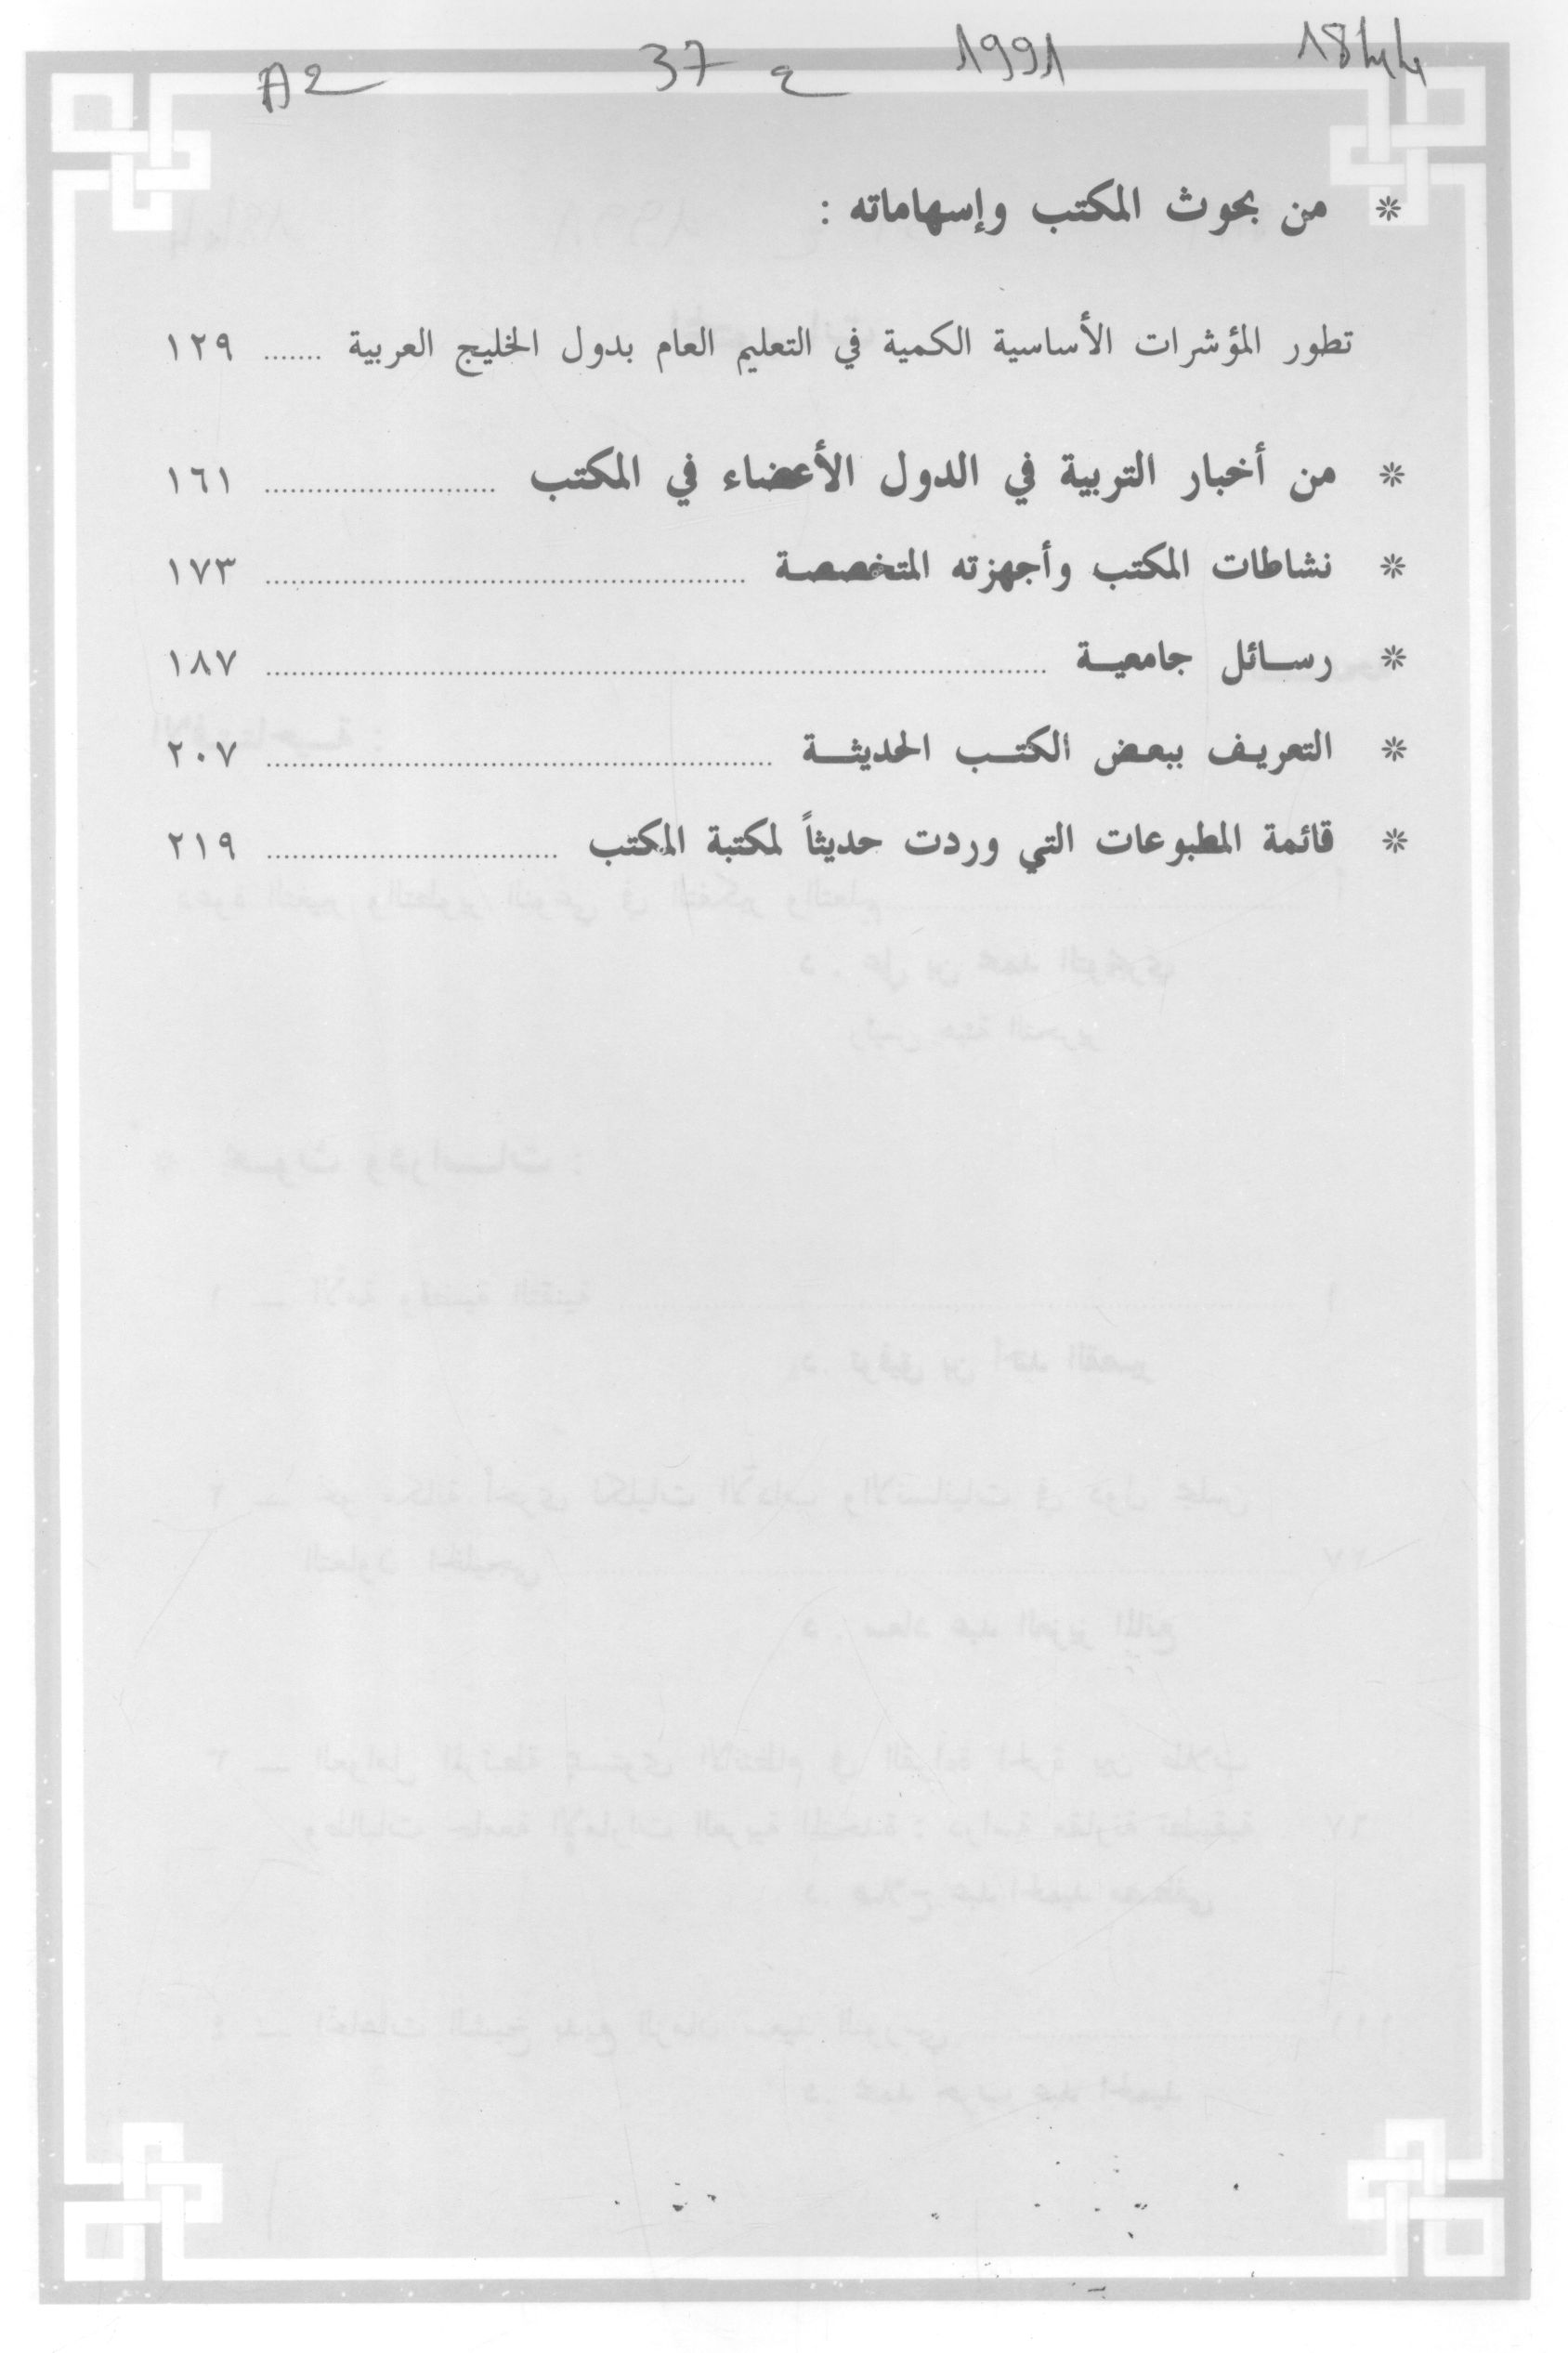 A2 37 ع 1991
* من بحوث المكتب وإسهاماته :
تطور المؤشرات الأساسية الكمية في التعليم العام بدول الخليج العربية ....... ١٢٩
* من أخبار التربية في الدول الأعضاء في المكتب ........................... ١٦١
* نشاطات المكتب وأجهزته المتخصصة ........................................................ ١٧٣
* رســائل جامعيــة ........................................................................................... ١٨٧
* التعريـف ببعـض الكتـب الحديثــة ........................................................... ٢٠٧
* قائمة المطبوعات التي وردت حديثاً لمكتبة المكتب .................................. ٢١٩